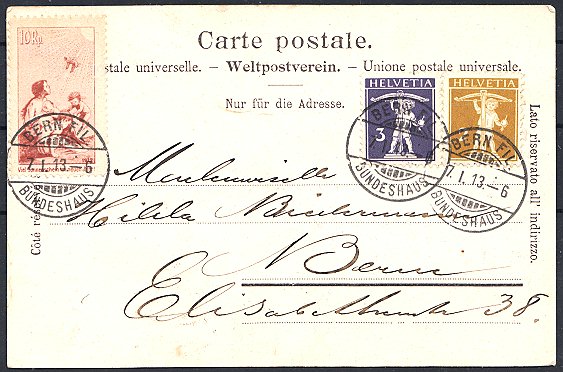 10 Rp
Carte postale.
stale universelle. – Weltpostverein. – Unione postale universale.
Nur für die Adresse.
HELVETIA
3
HELVETIA
BERN FIL.
7.I.13.–6
BUNDESHAUS
BERN
BUNDESHAUS
BERN FIL.
7.I.13.–6
BUNDESHAUS
Côté rés
Lato riservato all' indirizzo.
Mademoiselle
Hilda Biedermann
Bern
Elisabethenstr 38.